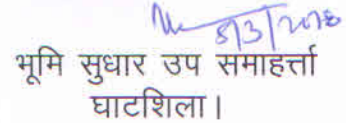 8/3/2018
भूमि सुधार उप समाहर्त्ता
घाटशिला।